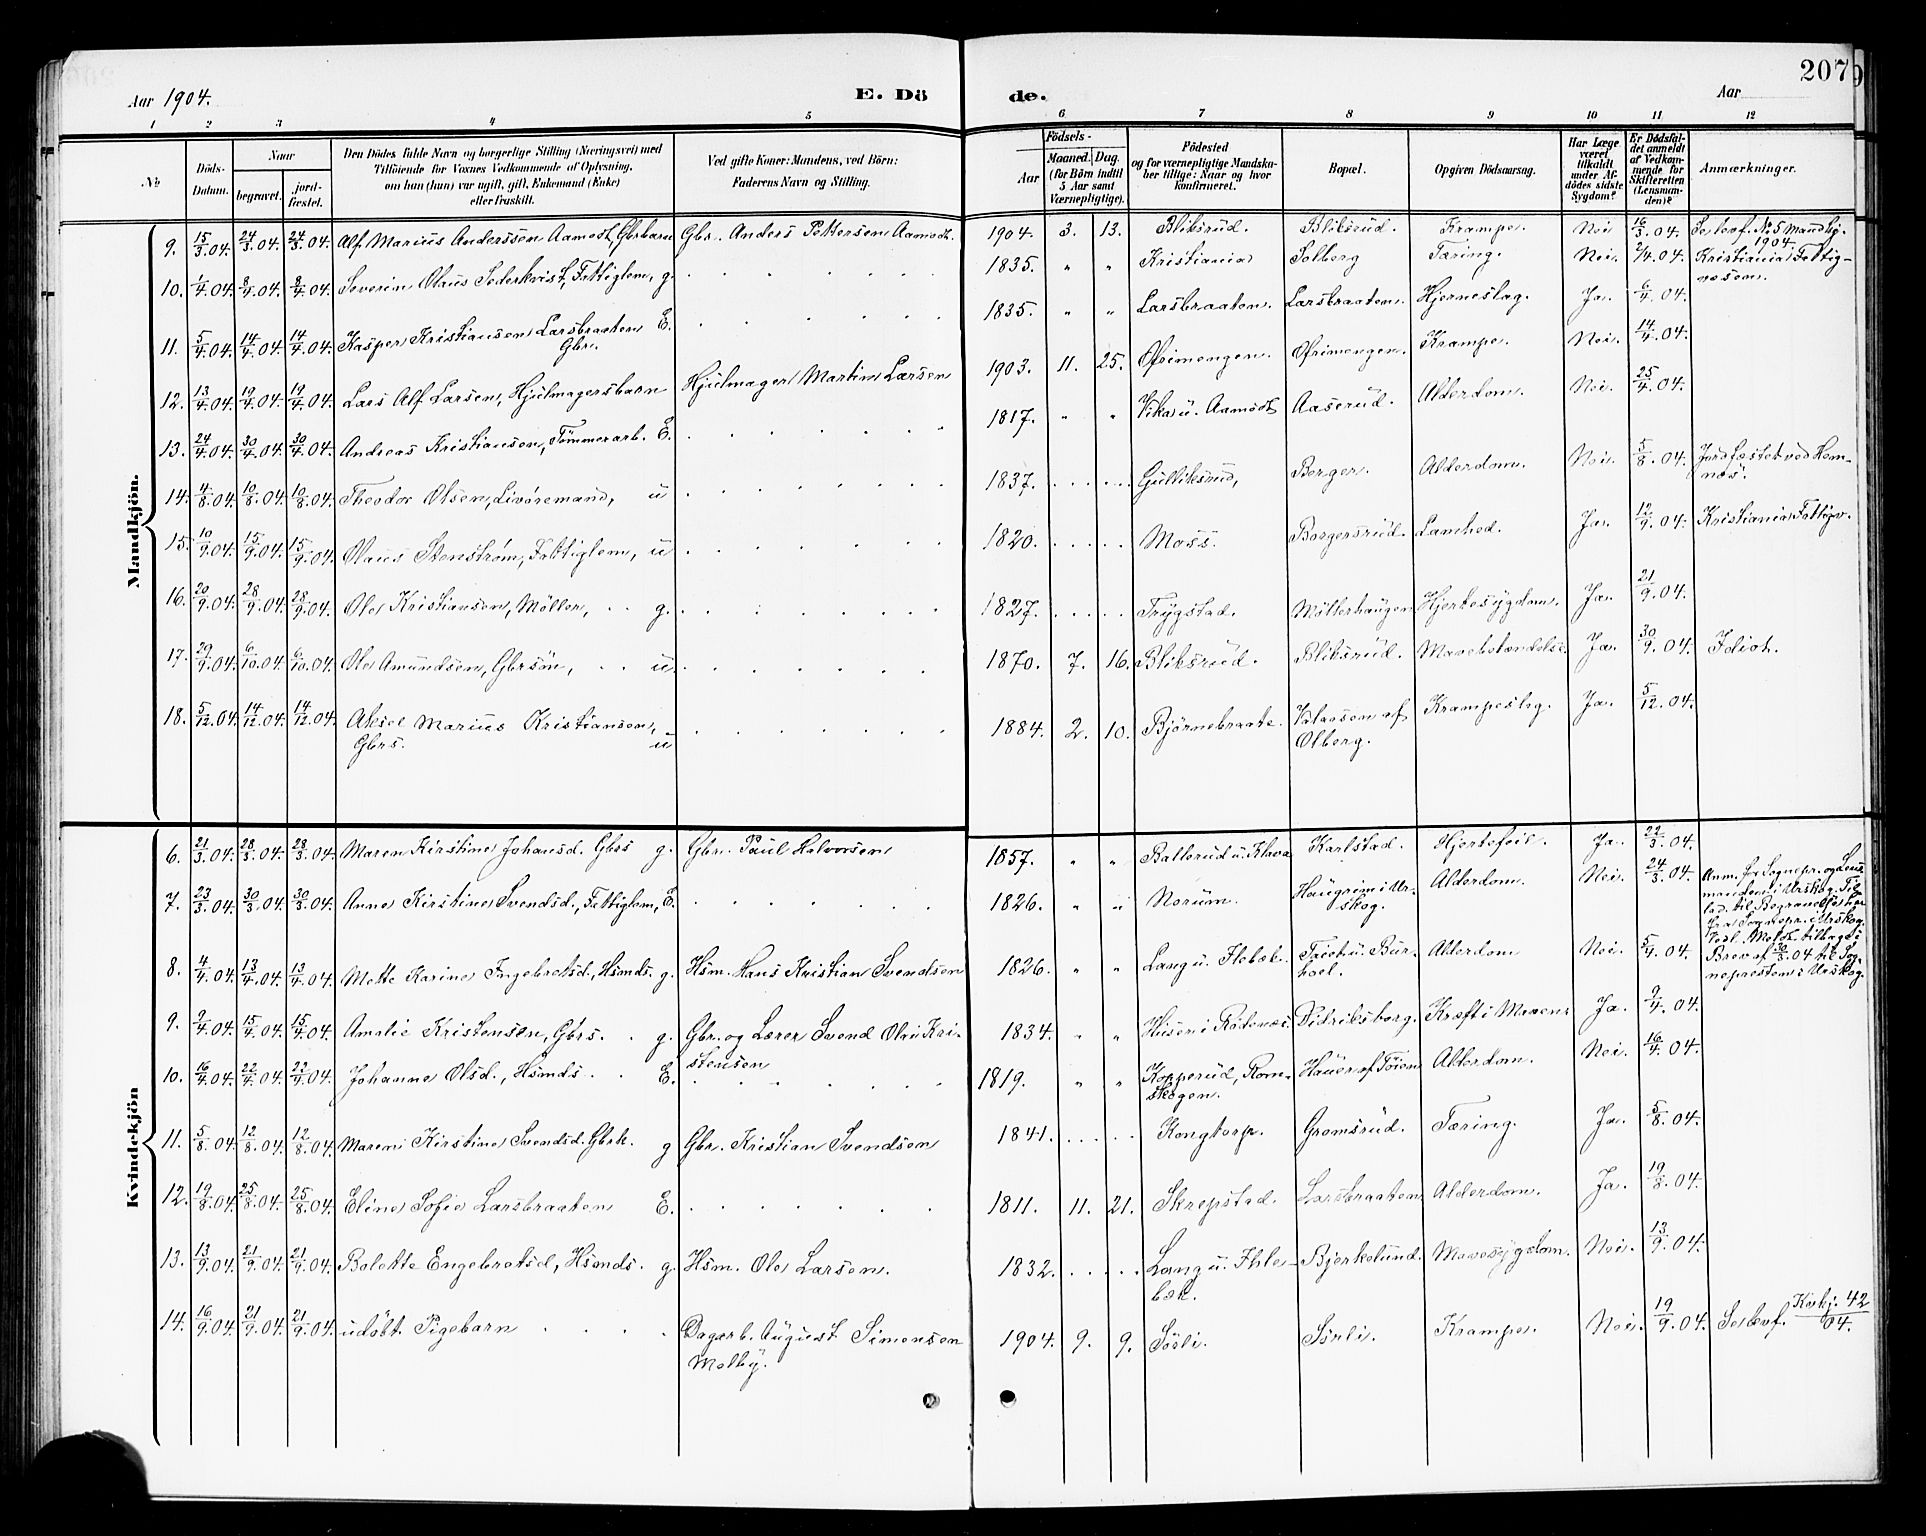 207
Aar 1904.
E. Dö de.
Aar
1 2 3 4 5 6 7 8 9 10 11 12
No
Döds-Datum.
Naar
begravet.
jord-fæstet.
Den Dödes fulde Navn og borgerlige Stilling (Næringsvei) med
Tilföiende for Voxnes Vedkommende af Oplysning,
om han (hun) var ugift, gift, Enkemand (Enke)
eller fraskilt.
Ved gifte Koner: Mandens, ved Börn:
Faderens Navn og Stilling.
Födsels-
Aar
Maaned. Dag.
(for Börn indtil 5 Aar samt Værnepligtige).
Födested
og for værnepligtige Mandskaber tillige: Naar og hvor konfirmeret.
Bopæl.
Opgiven Dödsaarsag.
Har Læge været tilkaldt under Afdödes sidste Sygdom?
Er Dödsfaldet anmeldt af Vedkommende for Skifteretten (Lensmanden)?
Anmærkninger.
Mandkjön.
9. 15/3.04. 24/3.04. 24/3.04. Alf Marius Anderssen Aamodt, Gbrbarn Gbr. Anders Pettersen Aamodt. 1904. 3. 13. Bliksrud. Bliksrud. Krampe. Nei 16/3.04. Se levf. No 5 Mandkj. 1904.
10. 1/4.04. 8/4.04. 8/4.04. Severin Olaus Sederkvist, Fattiglem, g. 1835. " " Kristiania Solberg Tæring. Nei. 2/4.04. Kristiania Fattigvæsen.
11. 5/4.04. 14/4.04. 14/4.04. Kasper Kristiansen Larsbraaten E. Gbr. 1835. " " Larsbraaten. Larsbraaten. Hjerneslag. Ja. 6/4.04.
12. 13/4.04. 19/4.04. 19/4.04. Lars Alf Larsen, Hjulmagersbarn Hjulmager Martin Larsen 1903. 11. 25. Ofrimengen. Ofrimengen. Krampe. Nei. 14/4.04.
13. 24/4.04. 30/4.04. 30/4.04. Andreas Kristiansen, Tømmerarb. E. 1817. " " Vika u. Aamodt Aaserud. Alderdom. Nei. 25/4.04.
14. 4/8.04. 10/8.04. 10/8.04. Theodor Olsen, Livøremand, u 1837. Gulliksrud, Berger. Alderdom. Nei. 5/8.04. Jordfæstet ved Hemnæs.
15. 10/9.04. 15/9.04. 15/9.04. Olaus Stenstrøm, Fattiglem, u 1820. Moss. Borgersrud. Lamhed. Ja. 12/9.04. Kristiania Fattigv.
16. 20/9.04. 28/9.04. 28/9.04. Ole Kristiansen, Møller, g. 1827. Trygstad. Møllerhaugen Hjertesygdom. Ja. 21/9.04.
17. 29/9.04. 6/10.04. 6/10.04. Ole Amundsen, Gbrsøn, u. 1870. 7. 16. Bliksrud. Bliksrud. Mavebetændelse. Ja. 30/9.04. Idiot.
18. 5/12.04. 14/12.04. 14/12.04. Aksel Marius Kristiansen, Gbrs. u 1884. 2. 10. Bjørnebraate. Valaasen af Olberg. Krampeslag. Ja. 5/12.04.
Kvindekjön
6. 21/3.04. 28/3.04. 28/3.04. Maren Kirstine Johansd. Gbrs g. Gbr. Paul Halvorsen 1857. " " Ballerud u. Klava Karlstad. Hjertefeil. Ja. 22/3.04.
7. 23/3.04. 30/3.04. 30/3.04. Anne Kirstine Svendsd., Fattiglem, E. 1826. " " Norum. Haugrim i Urskog. Alderdom. Nei. 24/3.04. Anm. for Sognepr. og Lensmanden i Urskog. Tillad. til Begravelse fra Sognepr. i Urskog. Vedl. Meld. tilbage i Brev af 30/3.04 til Sognepresten i Urskog.
8. 4/4.04. 13/4.04. 13/4.04. Mette Karine Ingebretsd, Hsmds. g. Hsm. Hans Kristian Svendsen 1826. " " Lang u. Ihlebæk. Alderdom Nei. 5/4.04.
9. 9/4.04. 15/4.04. 15/4.04. Amalie Kristensen, Gbrs. g. Gbr. og Lærer Svend Olai Kristensen 1834. " " Husen i Rødenæs. Didriksborg. Kræft i Maven Ja. 9/4.04.
10. 16/4.04. 22/4.04. 22/4.04. Johanne Olsd., Hsmds. E. 1819. " " Kopperud, Romskogen. Hauer af Toien Alderdom. Nei. 16/4.04.
11. 5/8.04. 12/8.04. 12/8.04. Maren Kirstine Svendsd. Gbrk. g Gbr. Kristian Svendsen 1841. Kongtorp. Gromsrud. Tæring. Ja. 5/8.04.
12. 19/8.04. 25/8.04. 25/8.04. Eline Sofie Larsbraaten E. 1811. 11. 21. Skrepstad. Larsbraaten Alderdom. Ja. 19/8.04.
13. 13/9.04. 21/9.04. 21/9.04. Bolette Engebretsd, Hsmds. g. Hsm. Ole Larsen. 1832. Lang u. Ihlebæk. Bjerkelund. Mavesygdom. Nei. 13/9.04.
14. 16/9.04. 21/9.04. 21/9.04. udøbt Pigebarn Dagarb. August Simensen Melby. 1904. 9. 9. Sörli. Sörli. Krampe. Nei. 19/9.04. Se levf. Kvkj. 42/04.